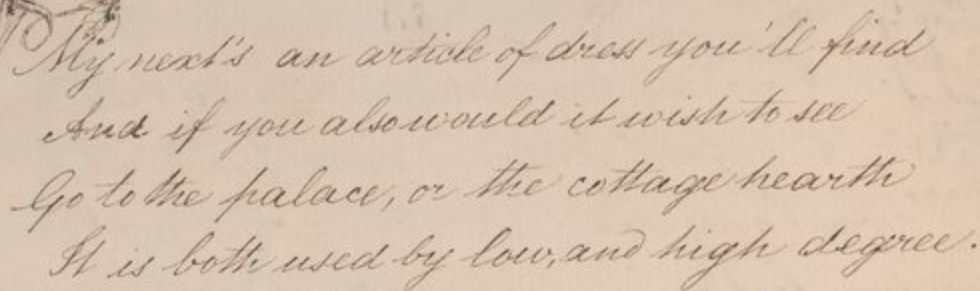 My next's an article of dress you'll find
And if you also would it wish to see
Go to the palace, or the cottage hearth
It is both used by low, and high degree.